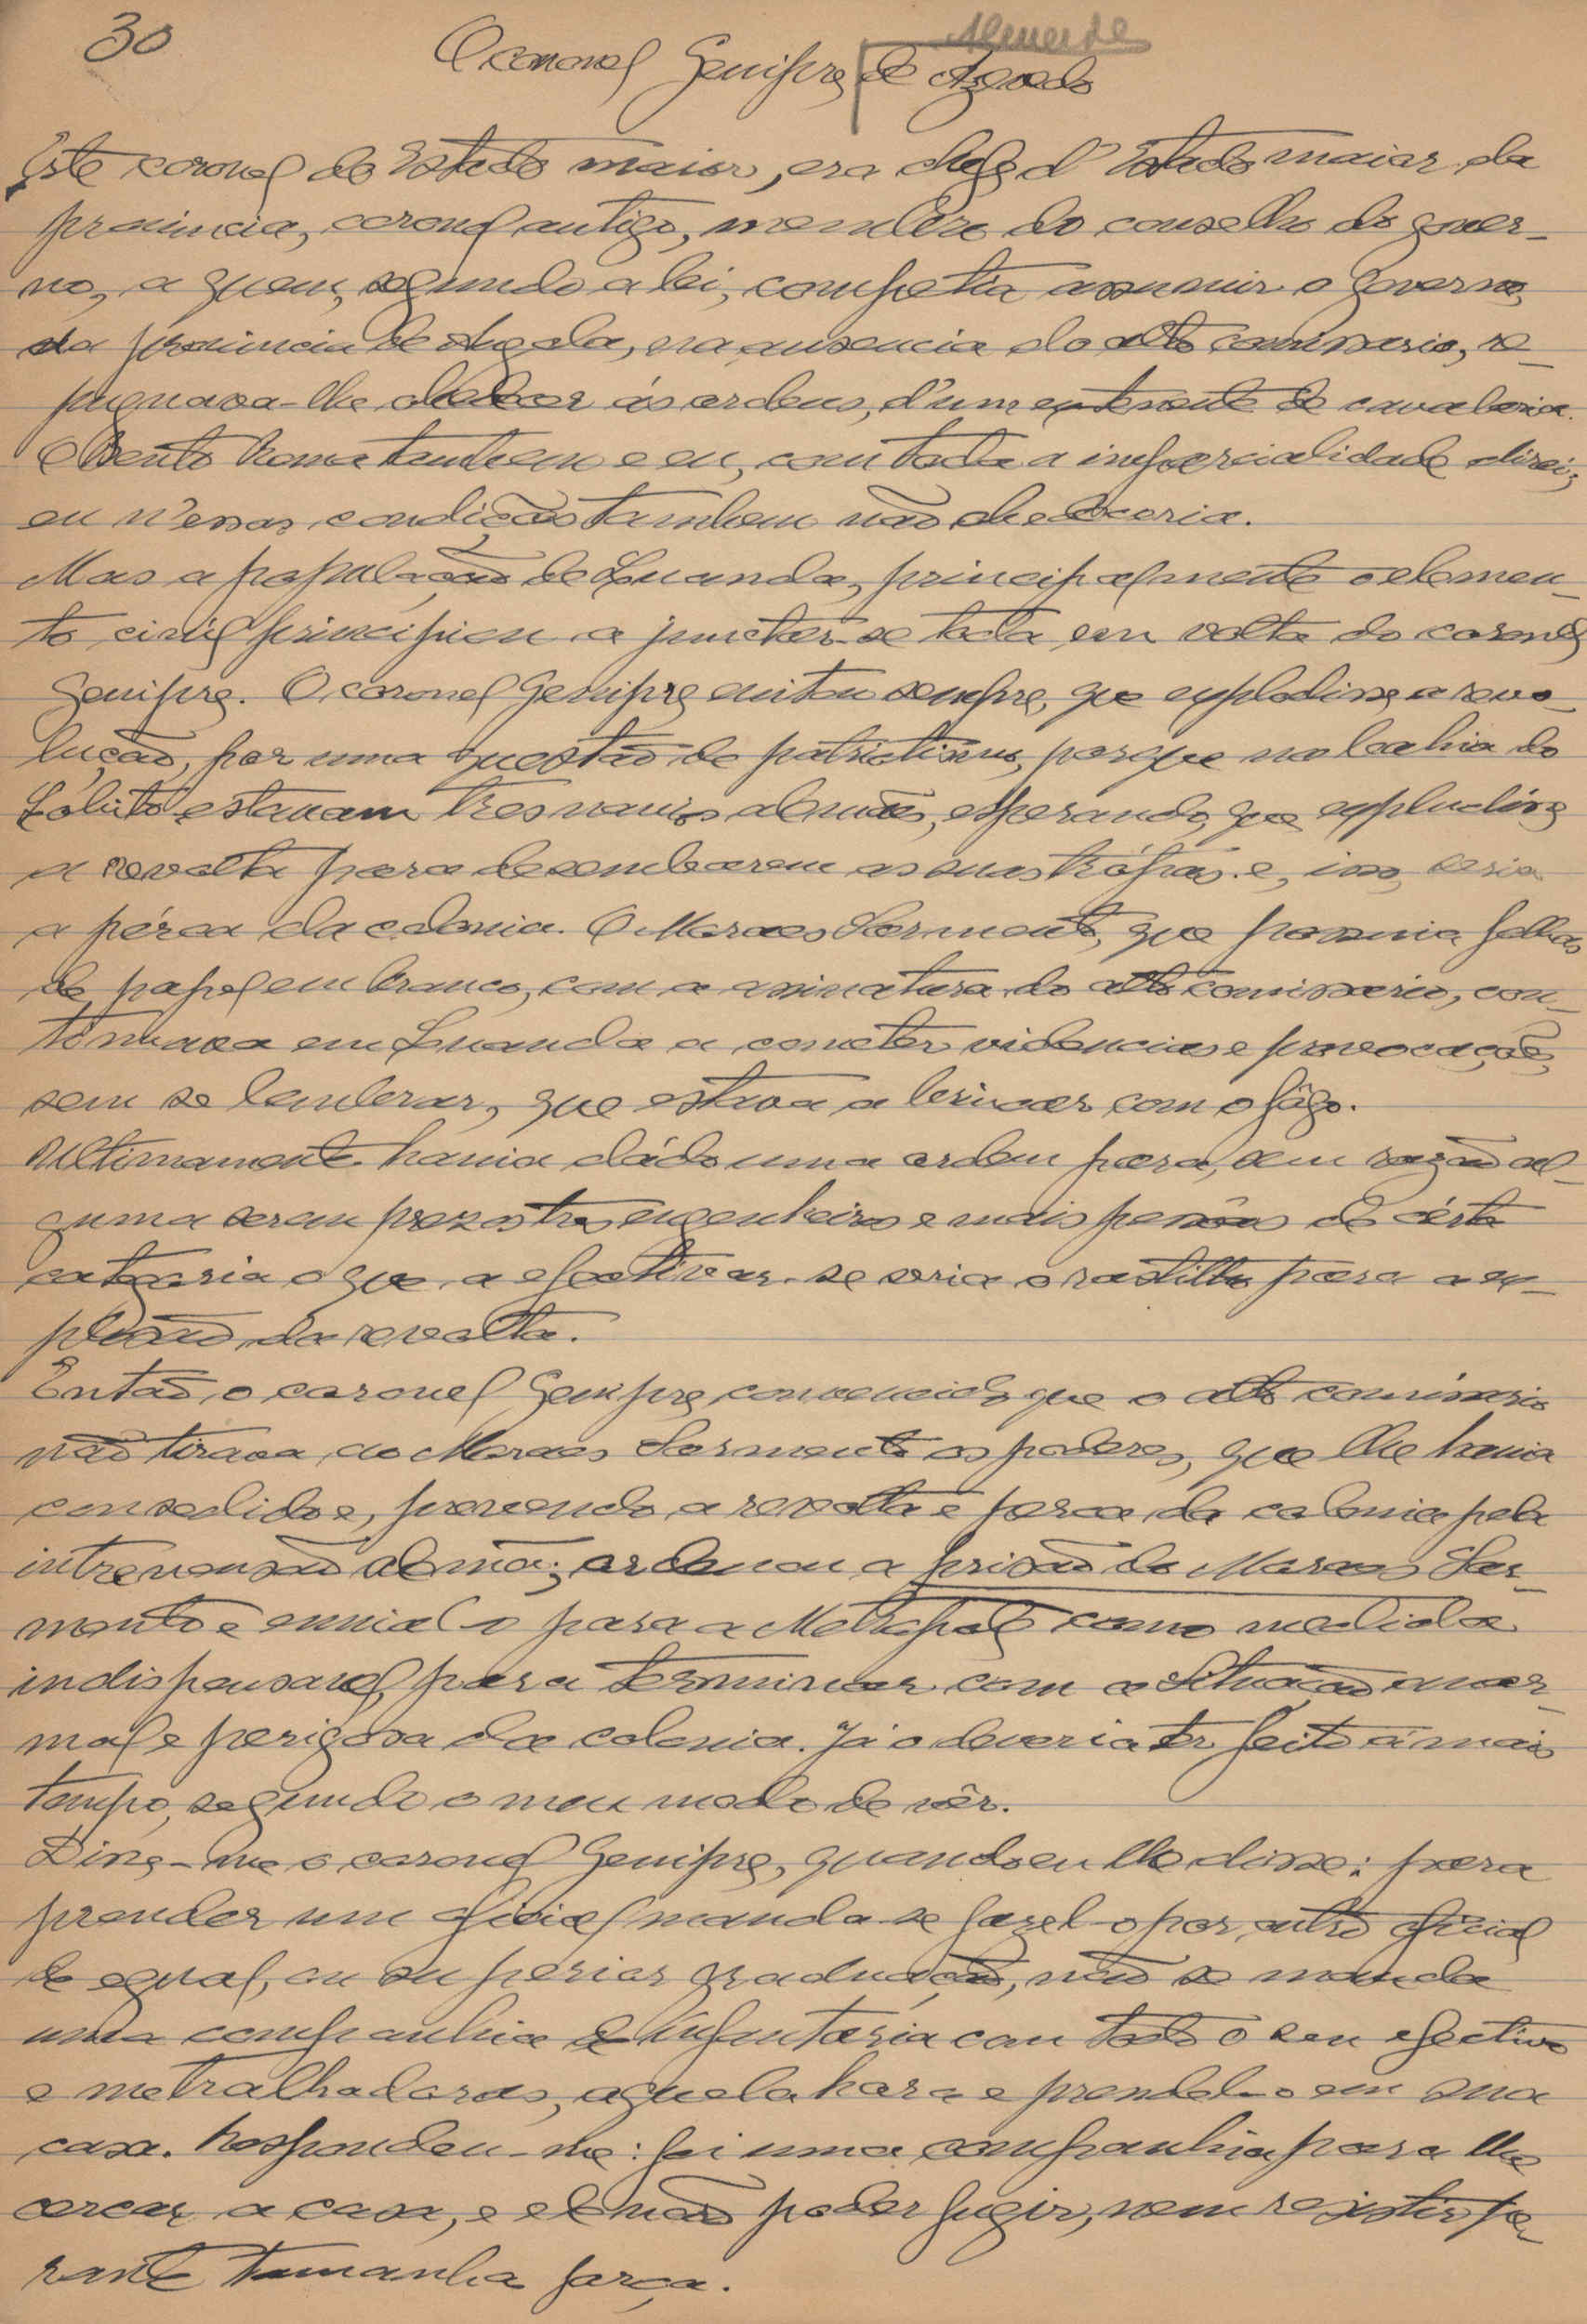 30
O coronel Genipre de Azevedo
Este coronel do Estado maior, era chefe d'Estado maior da
provincia, coronel antigo, membro do conselho do gover-
no, a quem, segundo a lei, competia assumir o governo
da provincia de Angola, na ausencia do alto comissario, re-
pugnava-lhe obedecer ás ordens, d'um tenente de cavalaria.
O Bento Roma tambem e eu, com toda a imparcialidade direi,
eu n'essas condições tambem não obedeceria.
Mas a população de Luanda, principalmente o elemen-
to civil principiou a junctar-se toda em volta do coronel
Genipre. O coronel Genipre evitou sempre, que explodisse a revo-
lução, por uma questão de patriotismo, porque na bahia do
Lobito estavam tres navios alemães, esperando, que expludisse
a revolta para desembarcarem as suas trópas. e, isso, seria
a pérca da colonia. O Moraes Sarmento, que possuia folhas
de papel em branco, com a assinatura do alto comissario, con-
tinuava em Luanda a cometer violencias e provocações,
sem se lembrar, que estava a brincar com o fôgo.
Ultimamente havia dádo uma ordem para, sem razão al-
guma serem presos tres engenheiros e mais pessôas de cérta
categoria o que a efectivar-se seria o rastilho para a ex-
plosão da revolta.
Então o coronel Genipre, convencido que o alto comissario
não tirava ao Moraes Sarmento os poderes, que lhe havia
consedido e, prevendo a revolta e perca da colonia pela
intrevensão alemã; ordenou a prisão do Moraes Sar-
mento e envial-o para a Metropole como medida
indispensavel, para terminar com a situação anor-
mal e perigosa da colonia. Já o deveria ter feito á mais
tempo, segundo o meu modo de vêr.
Disse-me o coronel Genipre, quando eu lhe disse: para
prender um oficial manda-se fazel-o por outro oficial
de egual, ou superior graduação, não se manda
uma companhia de Infantaria com todo o seu efectivo
e metralhadoras, aquela hora e prendel-o em sua
casa. Respondeu-me: foi uma companhia para lhe
cercar a casa, e ele não poder fugir, nem resistir pe-
rante tamanha força.